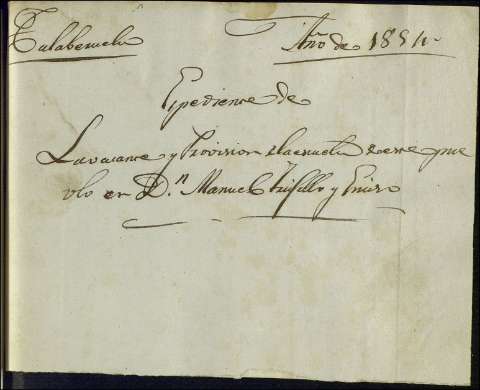 Talaberuela
Año de 1854
Expediente de
La vacante y Provision de la escuela de este pue
vlo en D.n Manuel Trujillo y